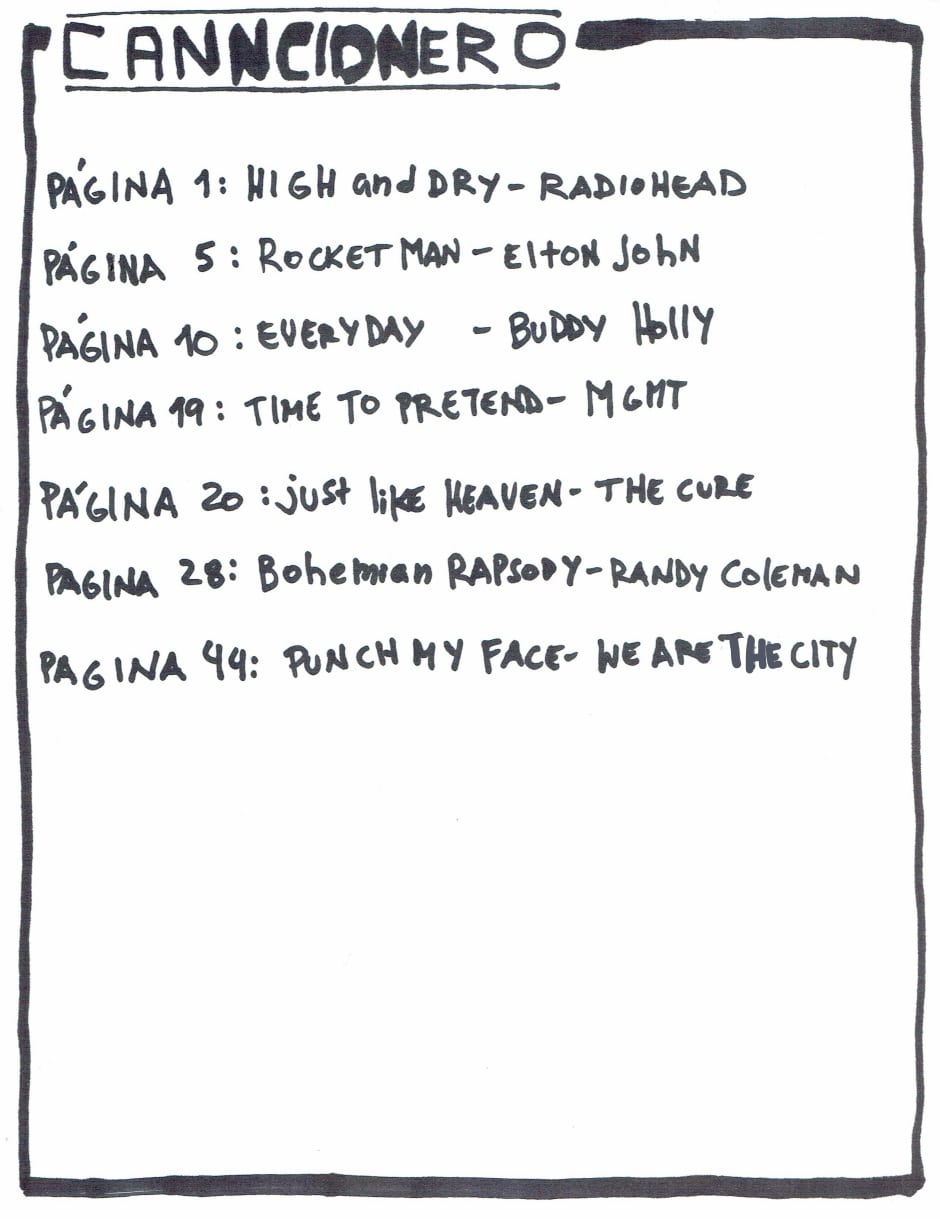 CANNCIONERO
PÁGINA 1: HIGH and DRY - RADIOHEAD
PÁGINA 5: ROCKET MAN - EltON JOhN
PÁGINA 10: EVERYDAY - BUDDY HollY
PÁGINA 19: TIME TO PRETEND - MGMT
PÁGINA 20: just likE HEAVEN - THE CURE
PAGINA 28: Bohemian RAPSODY - RANDY ColEMAN
PAGINA 44: PUNCH MY FACE - WE ARE THE CITY